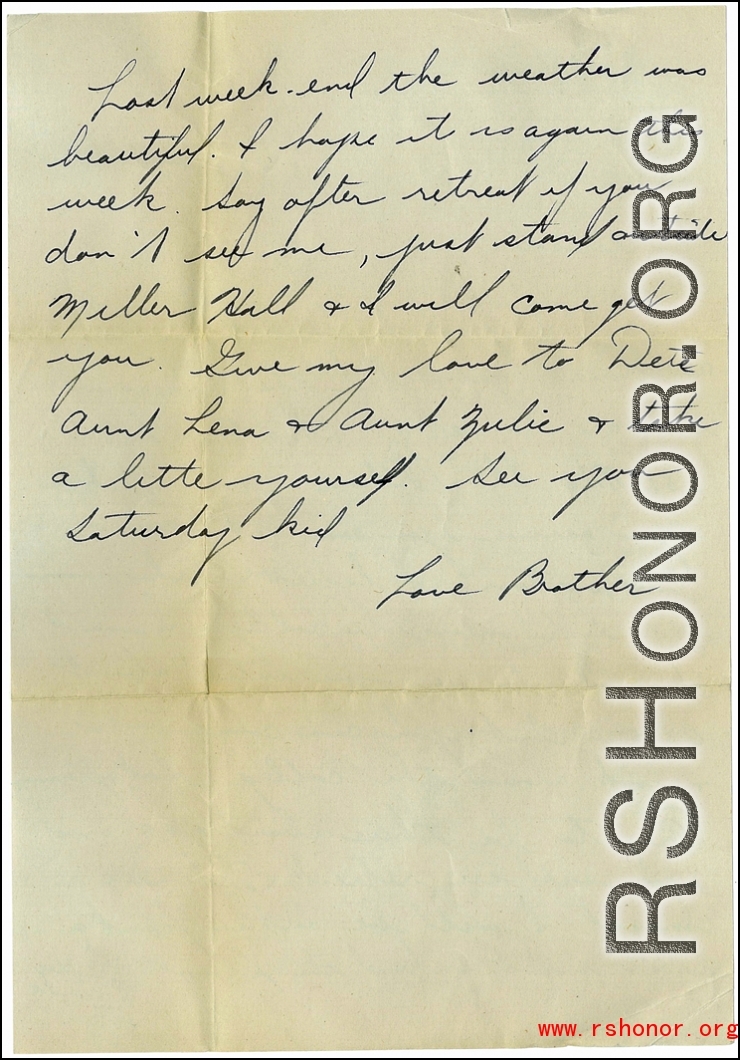 Last week-end the weather was
beautiful. I hope it is again this
week. Say after retreat if you
don't see me, just stand outside
Miller Hall & I will come get
you. Give my love to
Aunt Lena & Aunt Zulie & take
a little yourself. See you
Saturday kid
Love Brother
RSHONOR.ORG
www.rshonor.org